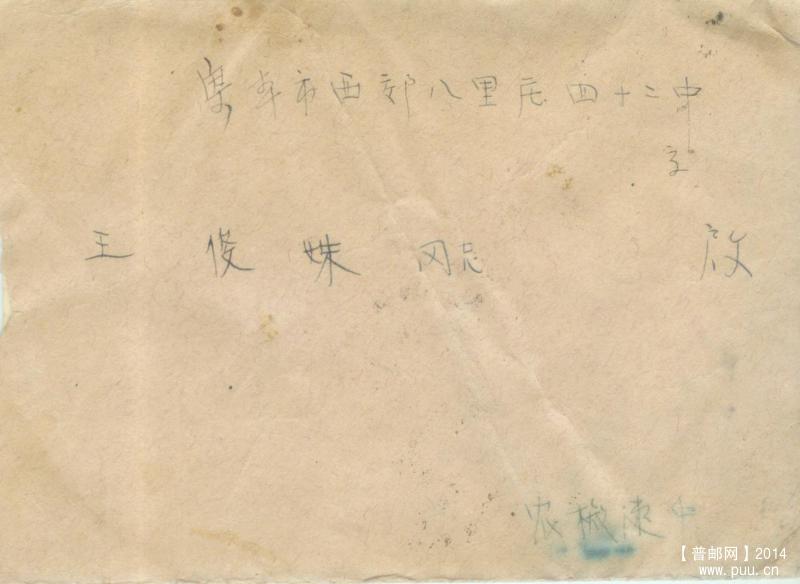 市西郊八里庄四十二中
王俊姝同志 启
农械
【普邮网】2014
www.puu.cn